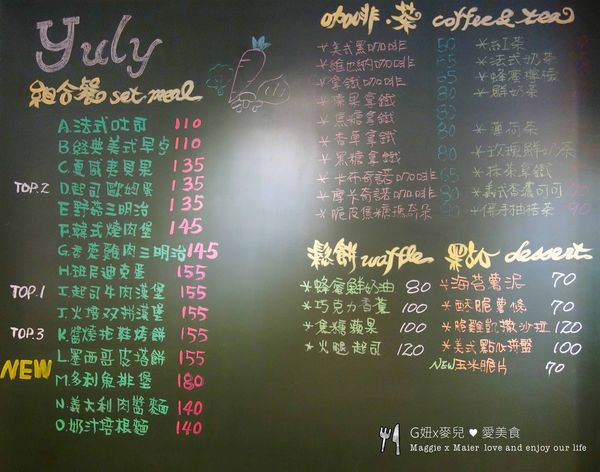 yuly
組合餐 set meal
A.法式吐司 110
B.經典美式早點 110
C.夏威夷貝果 135
TOP.2 D.起司歐姆蛋 135
E.野菇三明治 135
F.韓式燒肉堡 145
G.香蔥雞肉三明治 145
H.班尼迪克蛋 155
TOP.1 I.起司牛肉漢堡 155
J.火烤双拼漢堡 155
TOP.3 K.醬燒拖鞋烤餅 155
NEW L.墨西哥皮塔餅 155
M.多利魚排堡 180
N.義大利肉醬麵 140
O.奶汁培根麵 140
咖啡.茶 coffee & tea
*美式黑咖啡 50
*維也納咖啡 65
*拿鐵咖啡 65
*榛果拿鐵 80
*焦糖拿鐵
*香草拿鐵 80
*黑糖拿鐵 80
*卡布奇諾咖啡
*摩卡奇諾咖啡 80
*脆皮焦糖瑪奇朵
*紅茶
*法式奶茶
*蜂蜜檸檬
*鮮奶茶
*薄荷茶
*玫瑰鮮奶茶
*抹茶拿鐵
*義式香濃可可
*佛手柚桔茶 90
鬆餅 waffle
*蜂蜜鮮奶油 80
*巧克力香蕉 100
*焦糖蘋果 100
*火腿起司 120
dessert
*海苔薯泥 70
*酥脆薯條 70
*脆雞凱撒沙拉 120
*美式點心拼盤 100
NEW 玉米脆片 70
G妞x麥兒 ♥ 愛美食
Maggie x Maier love and enjoy our life